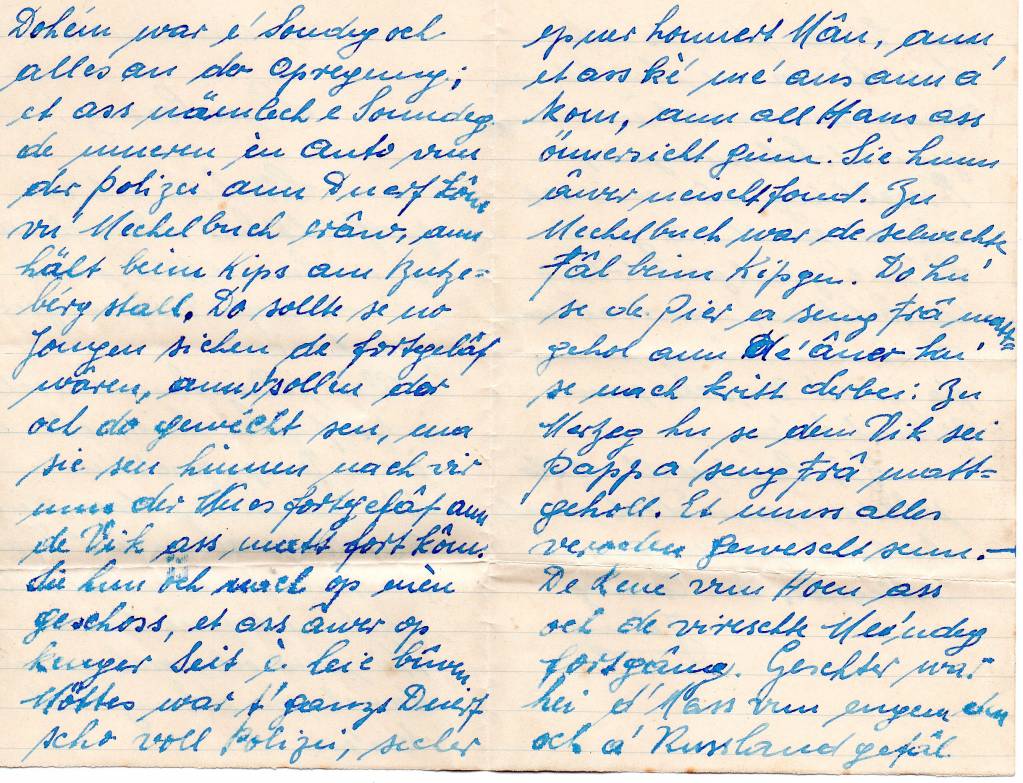 Dohém war é Sondeg och
alles an der Opregung;
et ass nämlech e Sonndeg
de mueren èn Auto vun
der Polizei ann Duerf kôm
vu Mechelbuch erâw, ann
hält beim Kips am Butze=
bérg stall. Do sollte se no
Jongen sichen dé fortgelâf
wären, ann sollen dor
och do gewécht sen, ma
sie sen hinnen nach vir
um der Hues fortgelâf ann
de Vik ass matt fort kôm.
Sie hun och nach op eièn
geschoss, et ass âwer op
kenger Seit è leie blivvn.
Möttes war t' ganzt Duerf
scho voll Polizei, secher
epuer honnert Mân, ann
et ass ké mé aus ann á
kom, ann all Haus ass
önnersicht ginn. Sie hunn
âwer neischt fond. Zu
Mechelbuch war de selwechte
Fâl beim Kipgen. Do hu'
se de Pier a seng Frâ matt
gehol ann dé âner hu'
se nach kritt derbei: Zu
Merzeg hu se dem Vik sei
Papp a' seng Frâ matt=
geholl. Et muss alles
veroden gewescht senn.—
De René vum Hoen ass
och de vireschte Méindeg
fortgâng. Geschter war
hei d' Mass vun engem den
och a' Russland gefâl